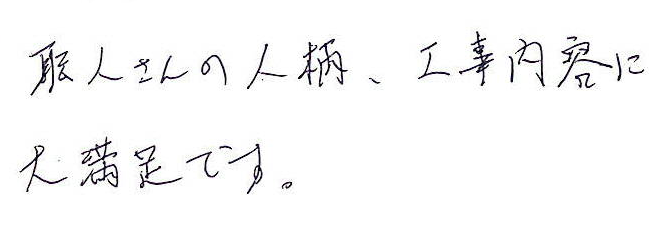 職人さんの人柄、工事内容に
大満足です。